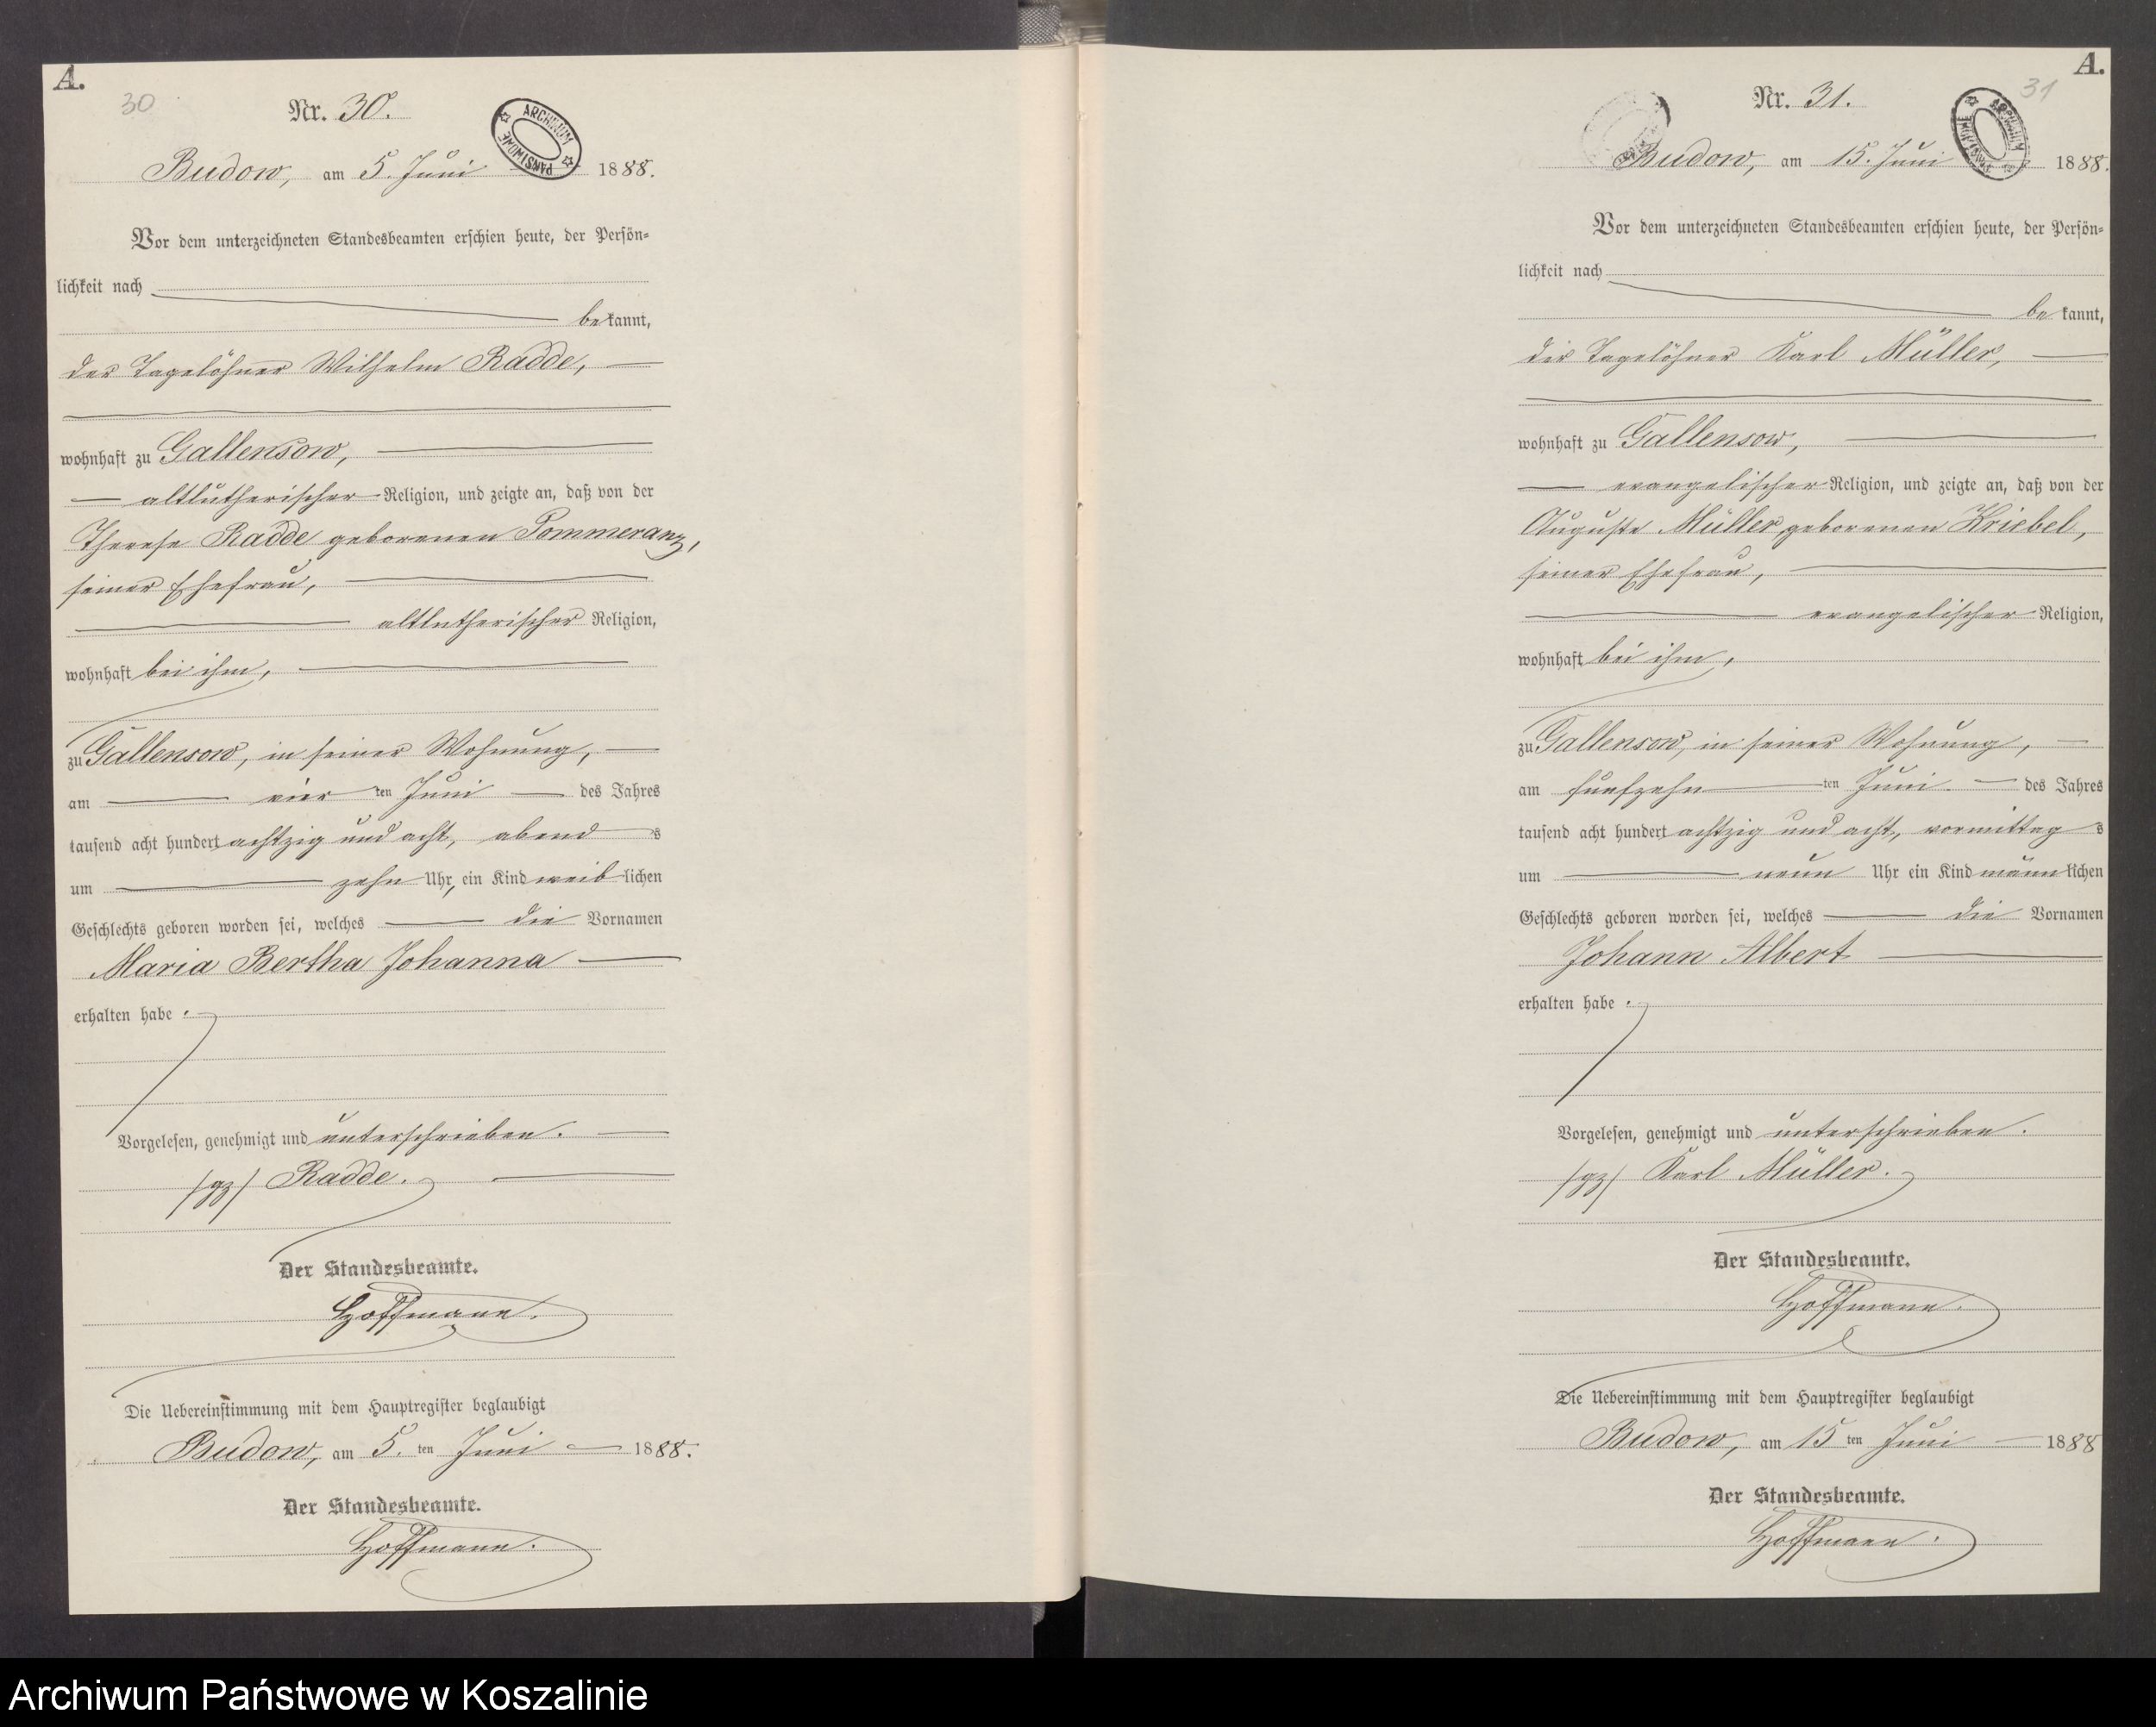 A.
30
Nr. 30.
ARCHIWUM PAŃSTWOWE
Budow, am 5. Juni 1888.
Vor dem unterzeichneten Standesbeamten erschien heute, der Persön-
lichkeit nach
bekannt,
der Tagelöhner Wilhelm Radde,
wohnhaft zu Gallensow,
altlutherischer Religion, und zeigte an, daß von der
Therese Radde geborenen Pommeranz,
seiner Ehefrau,
altlutherischer Religion,
wohnhaft bei ihm,
zu Gallensow, in seiner Wohnung,
am vier ten Juni des Jahres
tausend acht hundert achtzig und acht, abend s
um zehn Uhr, ein Kind weiblichen
Geschlechts geboren worden sei, welches die Vornamen
Maria Bertha Johanna
erhalten habe.
Vorgelesen, genehmigt und unterschrieben.
/gz/ Radde.
Der Standesbeamte.
Hoffmann.
Die Uebereinstimmung mit dem Hauptregister beglaubigt
Budow, am 5. ten Juni 1888.
Der Standesbeamte.
Hoffmann.
A.
31
Nr. 31.
ARCHIWUM PAŃSTWOWE
Budow, am 15. Juni 1888.
Vor dem unterzeichneten Standesbeamten erschien heute, der Persön-
lichkeit nach
bekannt,
der Tagelöhner Karl Müller,
wohnhaft zu Gallensow,
evangelischer Religion, und zeigte an, daß von der
Auguste Müller geborenen Kriebel,
seiner Ehefrau,
evangelischer Religion,
wohnhaft bei ihm,
zu Gallensow, in seiner Wohnung,
am fünfzehn ten Juni des Jahres
tausend acht hundert achtzig und acht, vormittag s
um neun Uhr ein Kind männlichen
Geschlechts geboren worden sei, welches die Vornamen
Johann Albert
erhalten habe.
Vorgelesen, genehmigt und unterschrieben.
/gz/ Karl Müller.
Der Standesbeamte.
Hoffmann.
Die Uebereinstimmung mit dem Hauptregister beglaubigt
Budow, am 15 ten Juni 1888
Der Standesbeamte.
Hoffmann.
Archiwum Państwowe w Koszalinie